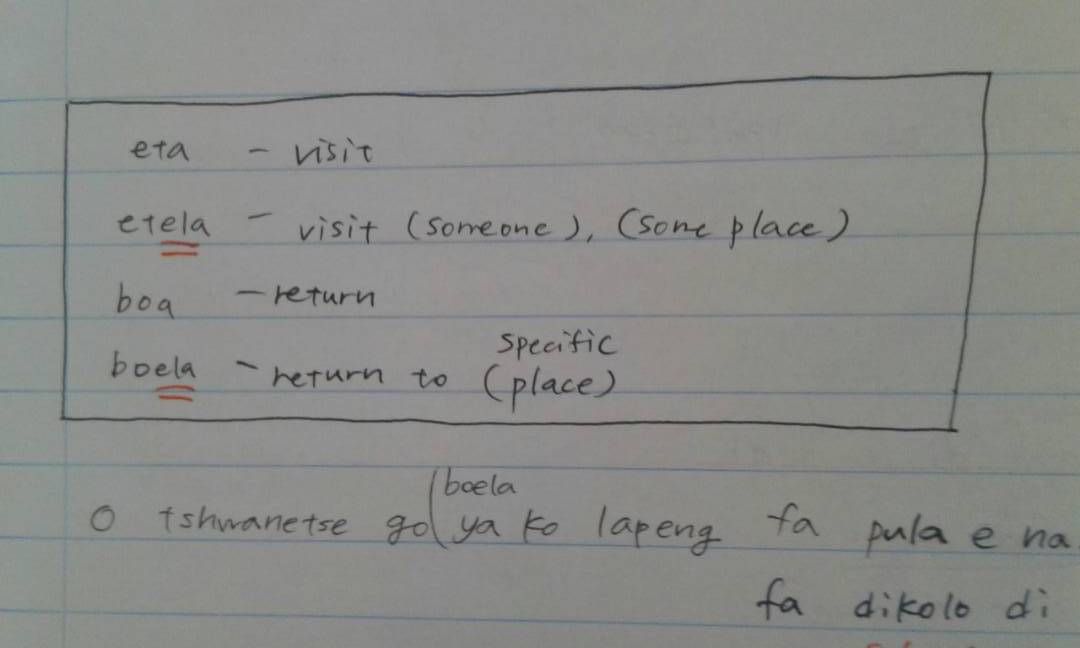 eta - visit
etela - visit (someone), (some place)
boa - return
specific
boela - return to (place)
boela
O tshwanetse go ya ko lapeng fa pula e na
fa dikolo di